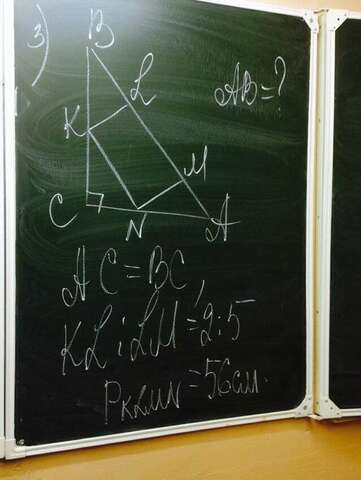 3)
B
L
AB=?
K
M
C
N
A
AC=BC,
KL:LM=2:5
PKLMN=56см.